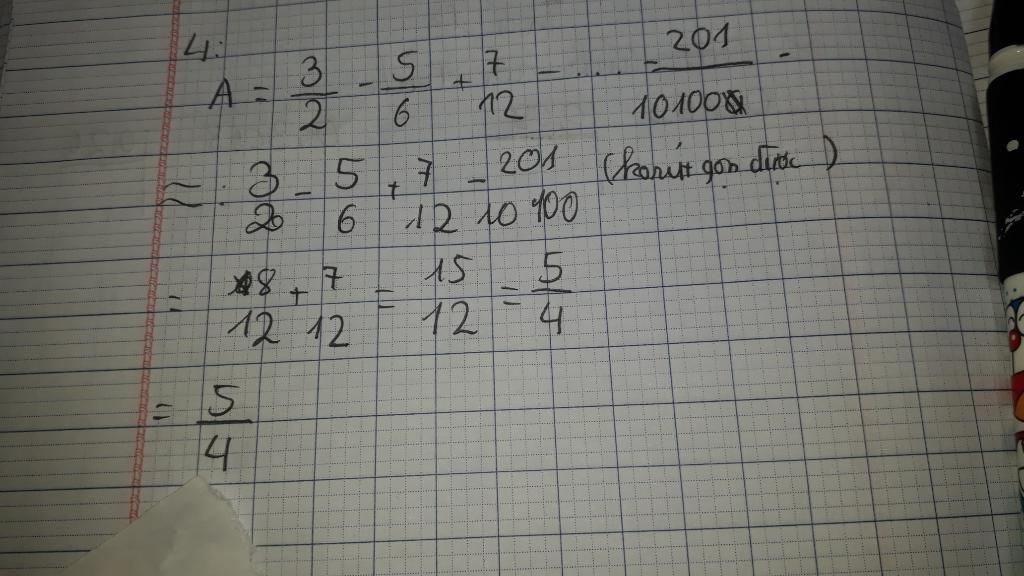 4:
A = 3/2 - 5/6 + 7/12 - ... - 201/10100 -
≈ : 3/2 - 5/6 + 7/12 - 201/10 100 ( gọn được )
= 8/12 + 7/12 = 15/12 = 5/4
= 5/4